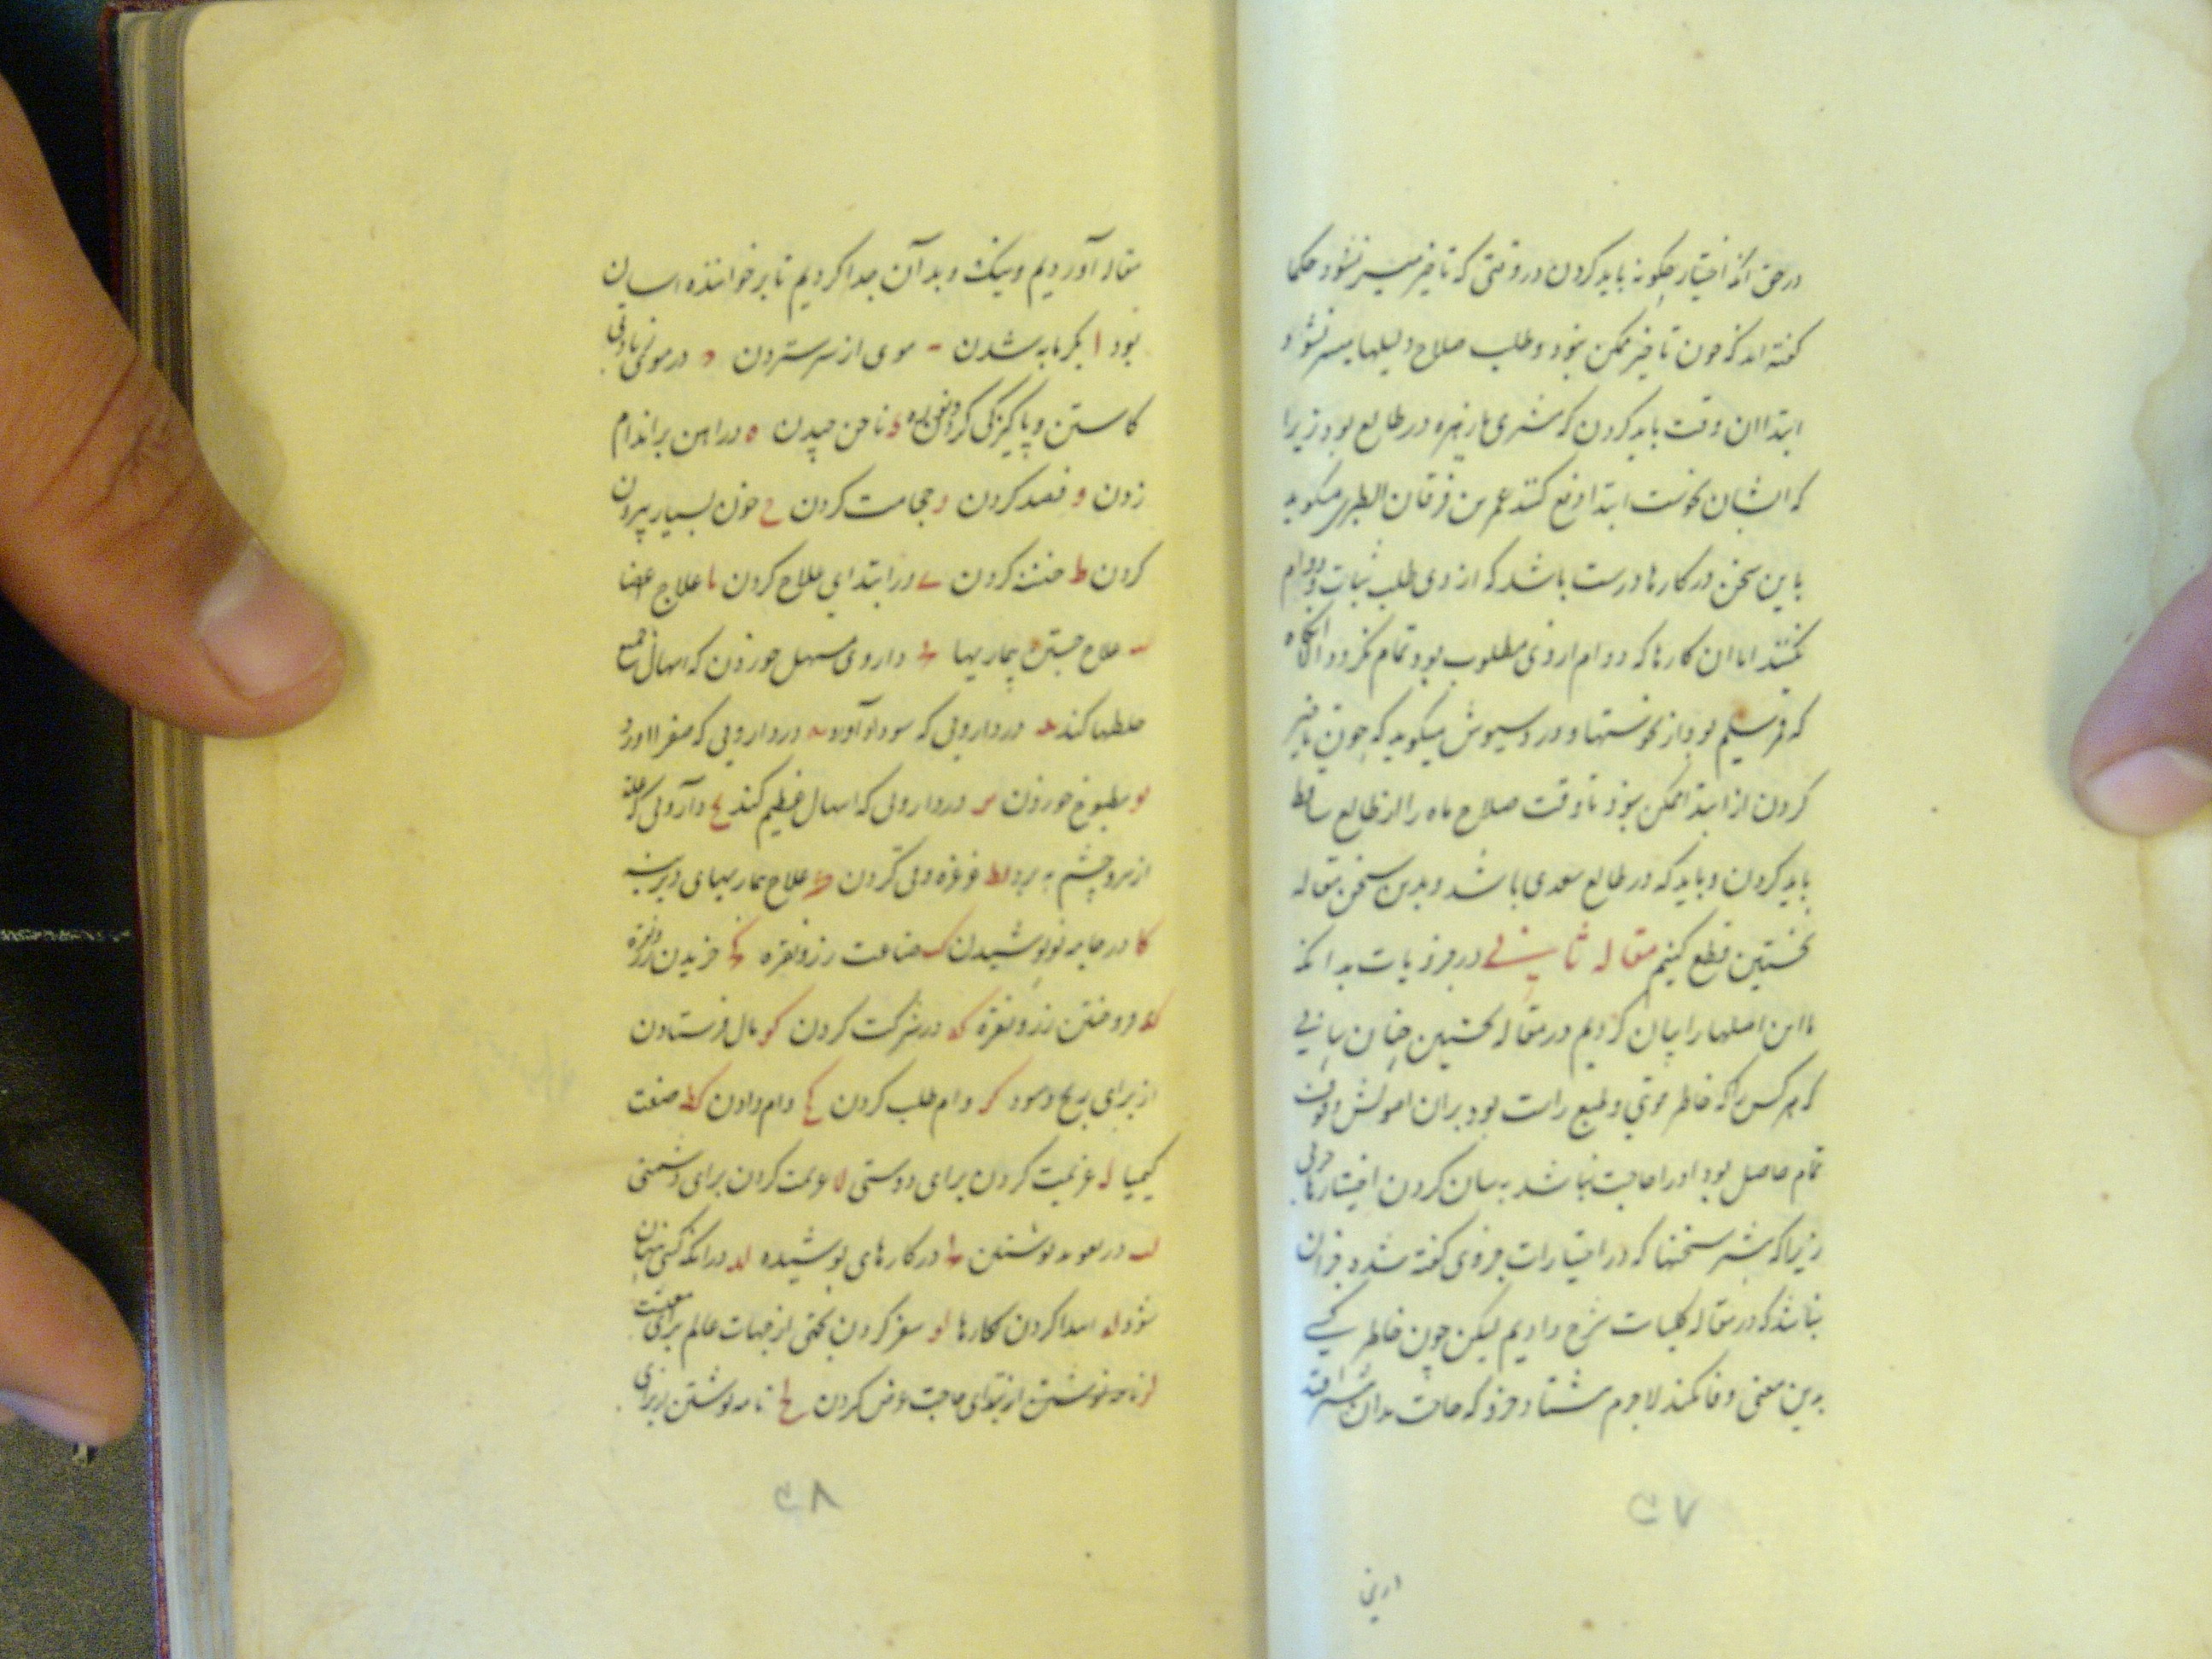 در حق آنکه اختیار چگونه باید کردن در وقتی که تاخیر میسر نشود حکما
گفته اند که چون تاخیر ممکن نبود و طلب صلاح دلیلها میسر نشود
ابتدا آن وقت باید کردن که مشتری یا زهره در طالع بود زیرا
که ایشان نحوست ابتدا دفع کنند عمر بن فرخان الطبری میگوید
باین سخن در کارها درست باشد که از وی طلب ثبات و دوام
نکنند اما آن کارها که دوام از وی مطلوب بود تمام نگردد الا آنگاه
که قمر سلیم بود از نحوستها و دروسیوش میگوید که چون تاخیر
کردن از ابتدا ممکن نبود تا وقت صلاح ماه را از طالع ساقط
باید کردن و باید که در طالع سعدی باشد و بدین سخن مقاله
نخستین قطع کنیم مقاله ثانی در جزویات بدانکه
ما این اصلها را بیان کردیم در مقاله نخستین چنان بیانی
که هر کس را که خاطر قوی و طبع راست بود بر آن اصولش وقوف
تمام حاصل بود او را حاجت نباشد به بیان کردن اختیارها جزوی
زیرا که بیشتر سخنها که در اختیارات جزوی گفته شده جز آن
نباشد که در مقاله کلیات شرح دادیم لیکن چون خاطر کسی
بدین معنی وفا نکند لاجرم هشتاد جزو که حاجت بدان بیشتر افتد
۳۷
درین
مقاله آوردیم و نیک و بد آن جدا کردیم تا بر خواننده آسان
بود ا بگرمابه شدن ب موی از سر ستردن ج در موی زیادتی
کاستن و پاکیزگی کردن د ناخن چیدن ه در آهن بر اندام
زدن و فصد کردن ز حجامت کردن ح خون بسیار بیرون
کردن ط ختنه کردن ی در ابتدای علاج کردن یا علاج اعضا
یب علاج جستن بیماریها یج داروی مسهل خوردن که اسهال جمیع
خلطها کند ید در داروئی که سودا آورد یه در داروئی که صفرا آورد
یو مطبوخ خوردن یز در داروئی که اسهال عظیم کند یح داروئی که علت
از سر و چشم ببرد یط غرغره و قی کردن ک علاج بیماریهای دیرینه
کا در جامه نو پوشیدن کب صناعت زر و نقره کج خریدن زر و نقره
کد فروختن زر و نقره که در شرکت کردن کو مال فرستادن
از برای ربح و سود کز وام طلب کردن کح وام دادن کط صنعت
کیمیا ل عزیمت کردن برای دوستی لا عزیمت کردن برای دشمنی
لب در تعوید نوشتن لج در کارهای پوشیده لد در آنکه کسی پنهان
شود له ابتدا کردن کارها لو سفر کردن بجهتی از جهات عالم برای معیشت
لز نامه نوشتن از برای حاجت عرض کردن لح نامه نوشتن از برای
۳۸